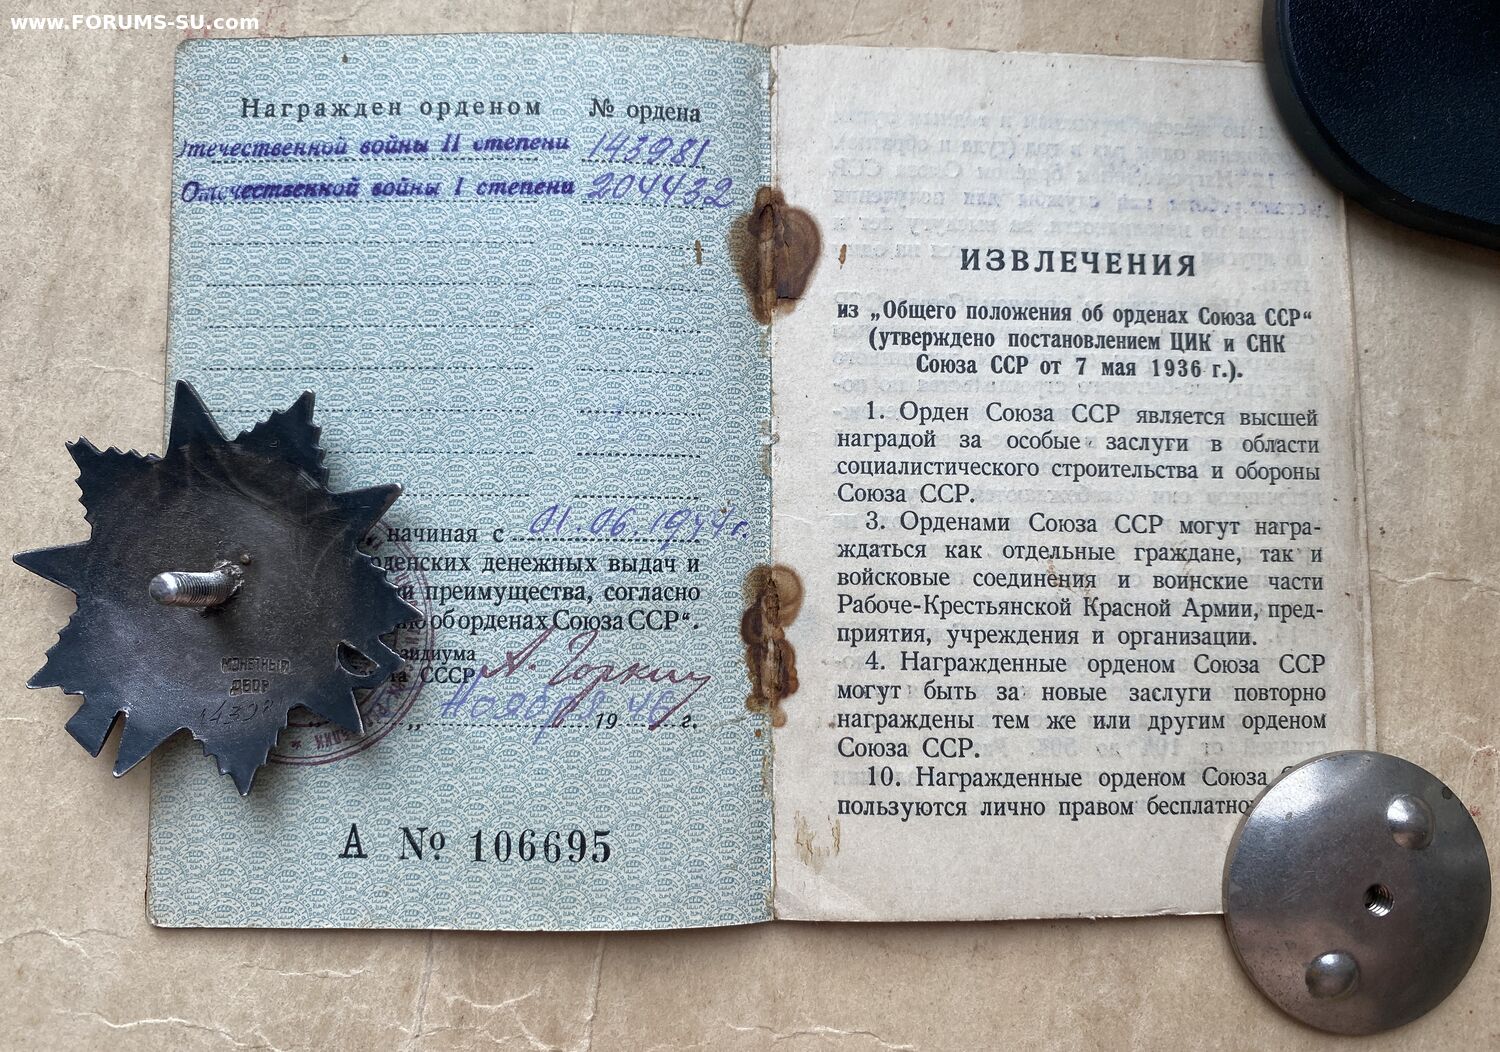 www.FORUMS-SU.com
Награжден орденом № ордена
Отечественной войны II степени 143981
Отечественной войны I степени 204432
начиная с 01.06.1944 г.
денежных выдач и
и преимущества, согласно
об орденах Союза ССР“.
СССР А. Горкин
„ Ноября 1946 г.
А № 106695
МОНЕТНЫЙ
ДВОР
ИЗВЛЕЧЕНИЯ
из „Общего положения об орденах Союза ССР“
(утверждено постановлением ЦИК и СНК
Союза ССР от 7 мая 1936 г.).
1. Орден Союза ССР является высшей
наградой за особые заслуги в области
социалистического строительства и обороны
Союза ССР.
3. Орденами Союза ССР могут награ-
ждаться как отдельные граждане, так и
войсковые соединения и воинские части
Рабоче-Крестьянской Красной Армии, пред-
приятия, учреждения и организации.
4. Награжденные орденом Союза ССР
могут быть за новые заслуги повторно
награждены тем же или другим орденом
Союза ССР.
10. Награжденные орденом Союза
пользуются лично правом